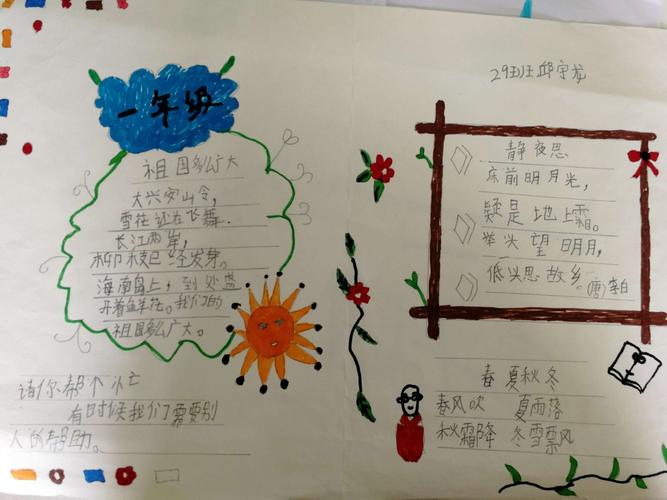 一年级
祖国多么广大
大兴安山令,
雪花还在飞舞.
长江两岸,
柳枝已经发芽。
海南岛上,到处盛
开着鲜花。我们的
祖国多么广大。
请你帮个忙
有时候我们需要别
人的帮助。
29班 邱宇龙
静夜思
床前明月光,
疑是地上霜。
举头望明月,
低头思故乡。(唐)李白
春夏秋冬
春风吹 夏雨落
秋霜降 冬雪飘风